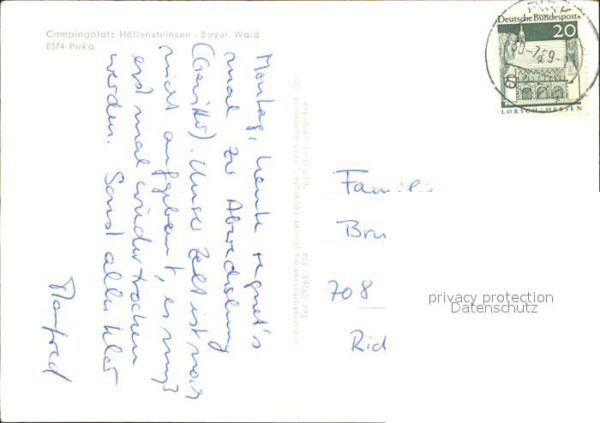 Campingplatz Höllensteinsee / Bayer. Wald
8374 Pirka
Montag, heute regnet's
mal zur Abwechslung
(Gewitter). Unser Zelt ist noch
nicht aufgebaut, es muß
erst mal wieder trocken
werden. Sonst alles klar
Manfred
Deutsche Bundespost
20
LORSCH · HESSEN
Famili
Bru
708
Rid
privacy protection
Datenschutz